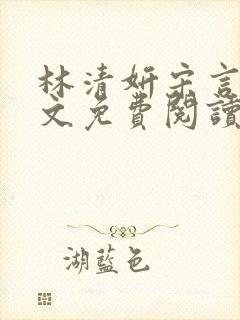 林清妍宋言
文免費閱讀
湖藍色